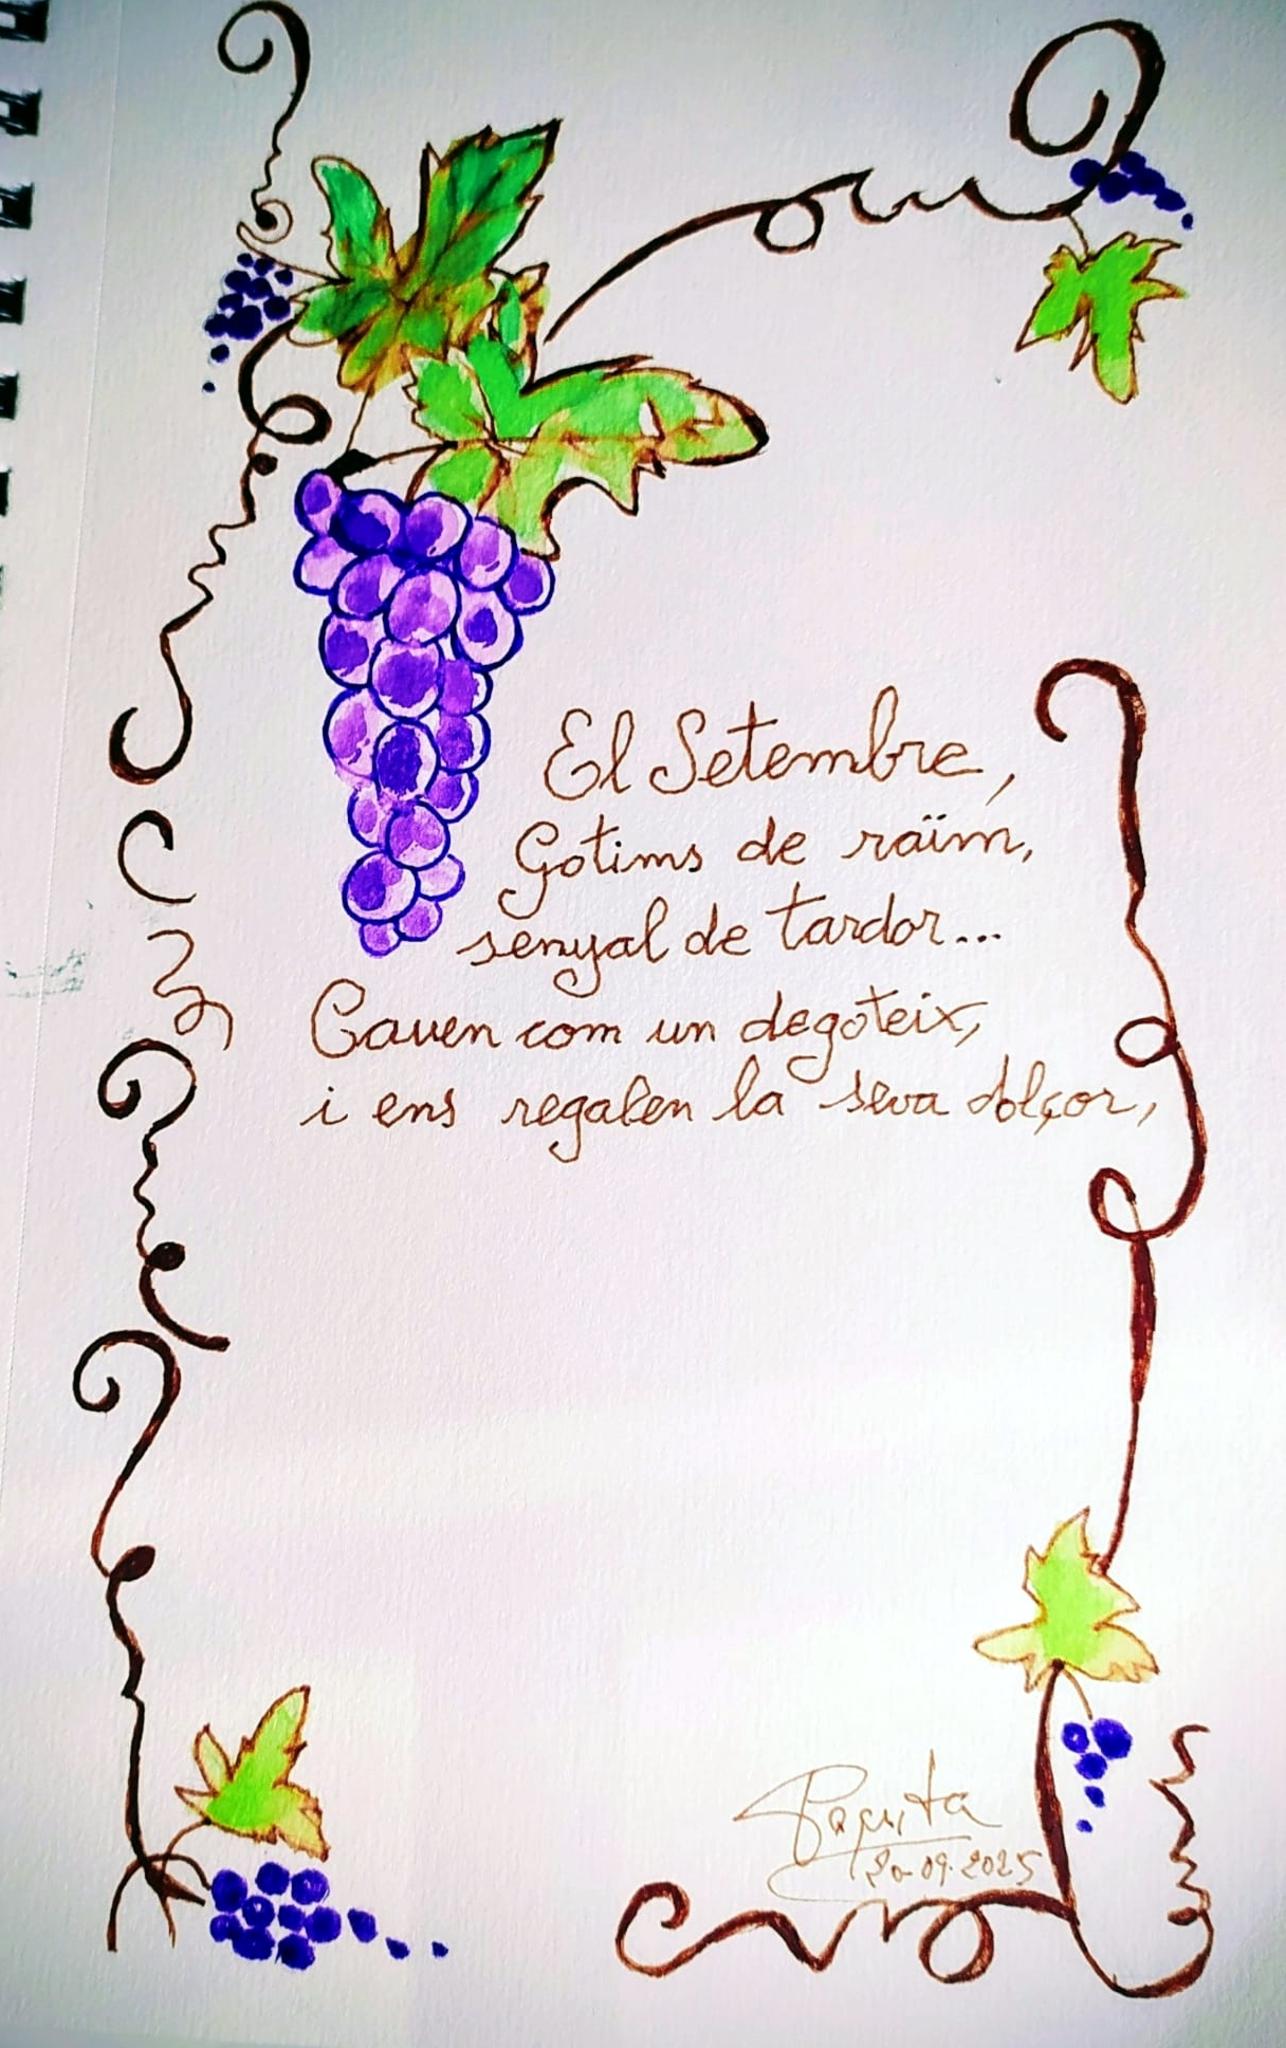 El Setembre,
Gotims de raïm,
senyal de tardor...
Cauen com un degoteix,
i ens regalen la seva dolçor,
Paquita
20-09-2025